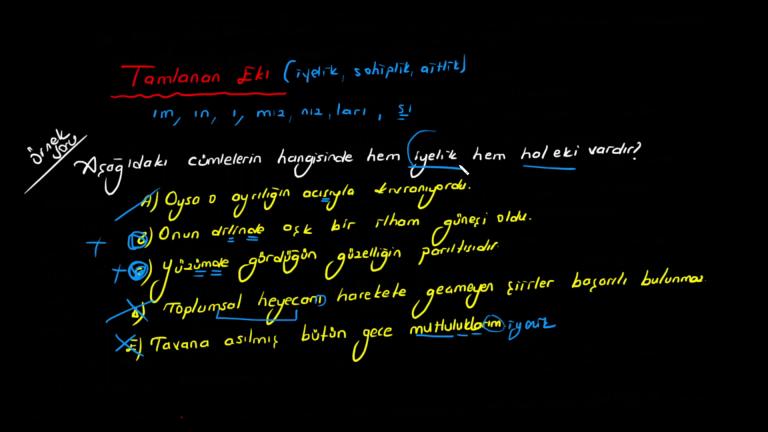 Tamlanan Eki (iyelik, sahiplik, aitlik)
ım, ın, ı, mız, nız, ları, sı
örnek soru
Aşağıdaki cümlelerin hangisinde hem iyelik hem hal eki vardır?
A) Oysa o ayrılığın acısıyla kıvranıyordu.
B) Onun dilinde aşk bir ilham güneşi oldu.
C) Yüzümde gördüğün güzelliğin parıltısıdır
D) Toplumsal heyecanı harekete geçmeyen şiirler başarılı bulunmaz.
E) Tavana asılmış bütün gece mutluluklarım iyelik